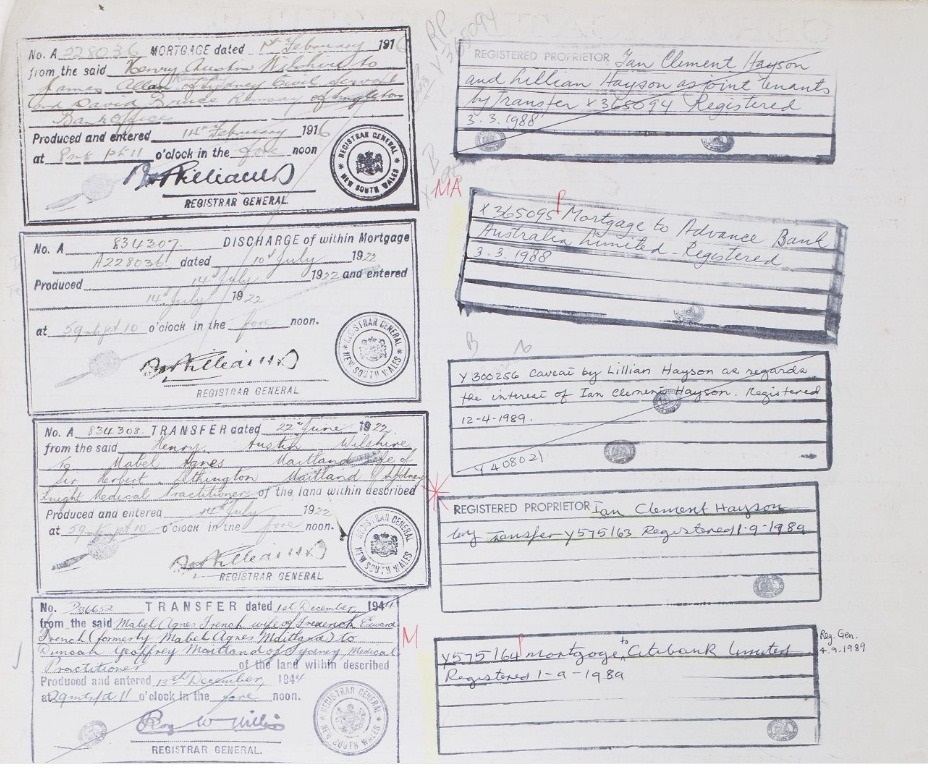 No. A 228036 MORTGAGE dated 1st February 1916
from the said Henry Austin Wilshire to
James Allan of Sydney Civil Servant
and David Ramsay of Singleton
Bank Officer
Produced and entered 11th February 1916
at pt 11 o'clock in the fore noon
REGISTRAR GENERAL.
REGISTRAR GENERAL
NEW SOUTH WALES
No. A 834307 DISCHARGE of within Mortgage
A228036 dated 10th July 1922
Produced 14th July 1922 and entered
14th July 1922
at pt 10 o'clock in the fore noon.
REGISTRAR GENERAL
REGISTRAR GENERAL
NEW SOUTH WALES
No. A 834308 TRANSFER dated 22nd June 1922
from the said Henry Austin Wilshire
to Mabel Agnes Maitland wife of
Sir Herbert Maitland of Sydney
Knight Medical Practitioner of the land within described
Produced and entered 14th July 1922
at pt 10 o'clock in the fore noon.
REGISTRAR GENERAL
REGISTRAR GENERAL
NEW SOUTH WALES
No. TRANSFER dated 1st December 1944
from the said Mabel Agnes French wife of Frederick Edward
French (formerly Mabel Agnes Maitland) to
Geoffrey Maitland of Sydney Medical
Practitioner of the land within described
Produced and entered 13th December 1944
at pt 11 o'clock in the fore noon.
REGISTRAR GENERAL.
REGISTRAR GENERAL
NEW SOUTH WALES
RP
X365094
REGISTERED PROPRIETOR Ian Clement Hayson
and Lillian Hayson as joint tenants
by transfer X365094 Registered
3.3.1988
MA
X365095 Mortgage to Advance Bank
Australia Limited - Registered
3.3.1988
Y300256 Caveat by Lillian Hayson as regards
the interest of Ian Clement Hayson. Registered
12-4-1989.
Y408021
REGISTERED PROPRIETOR Ian Clement Hayson
by transfer Y575163 Registered 1-9-1989
M
Y575164 mortgage to Citibank Limited
Registered 1-9-1989
Reg. Gen.
4.9.1989